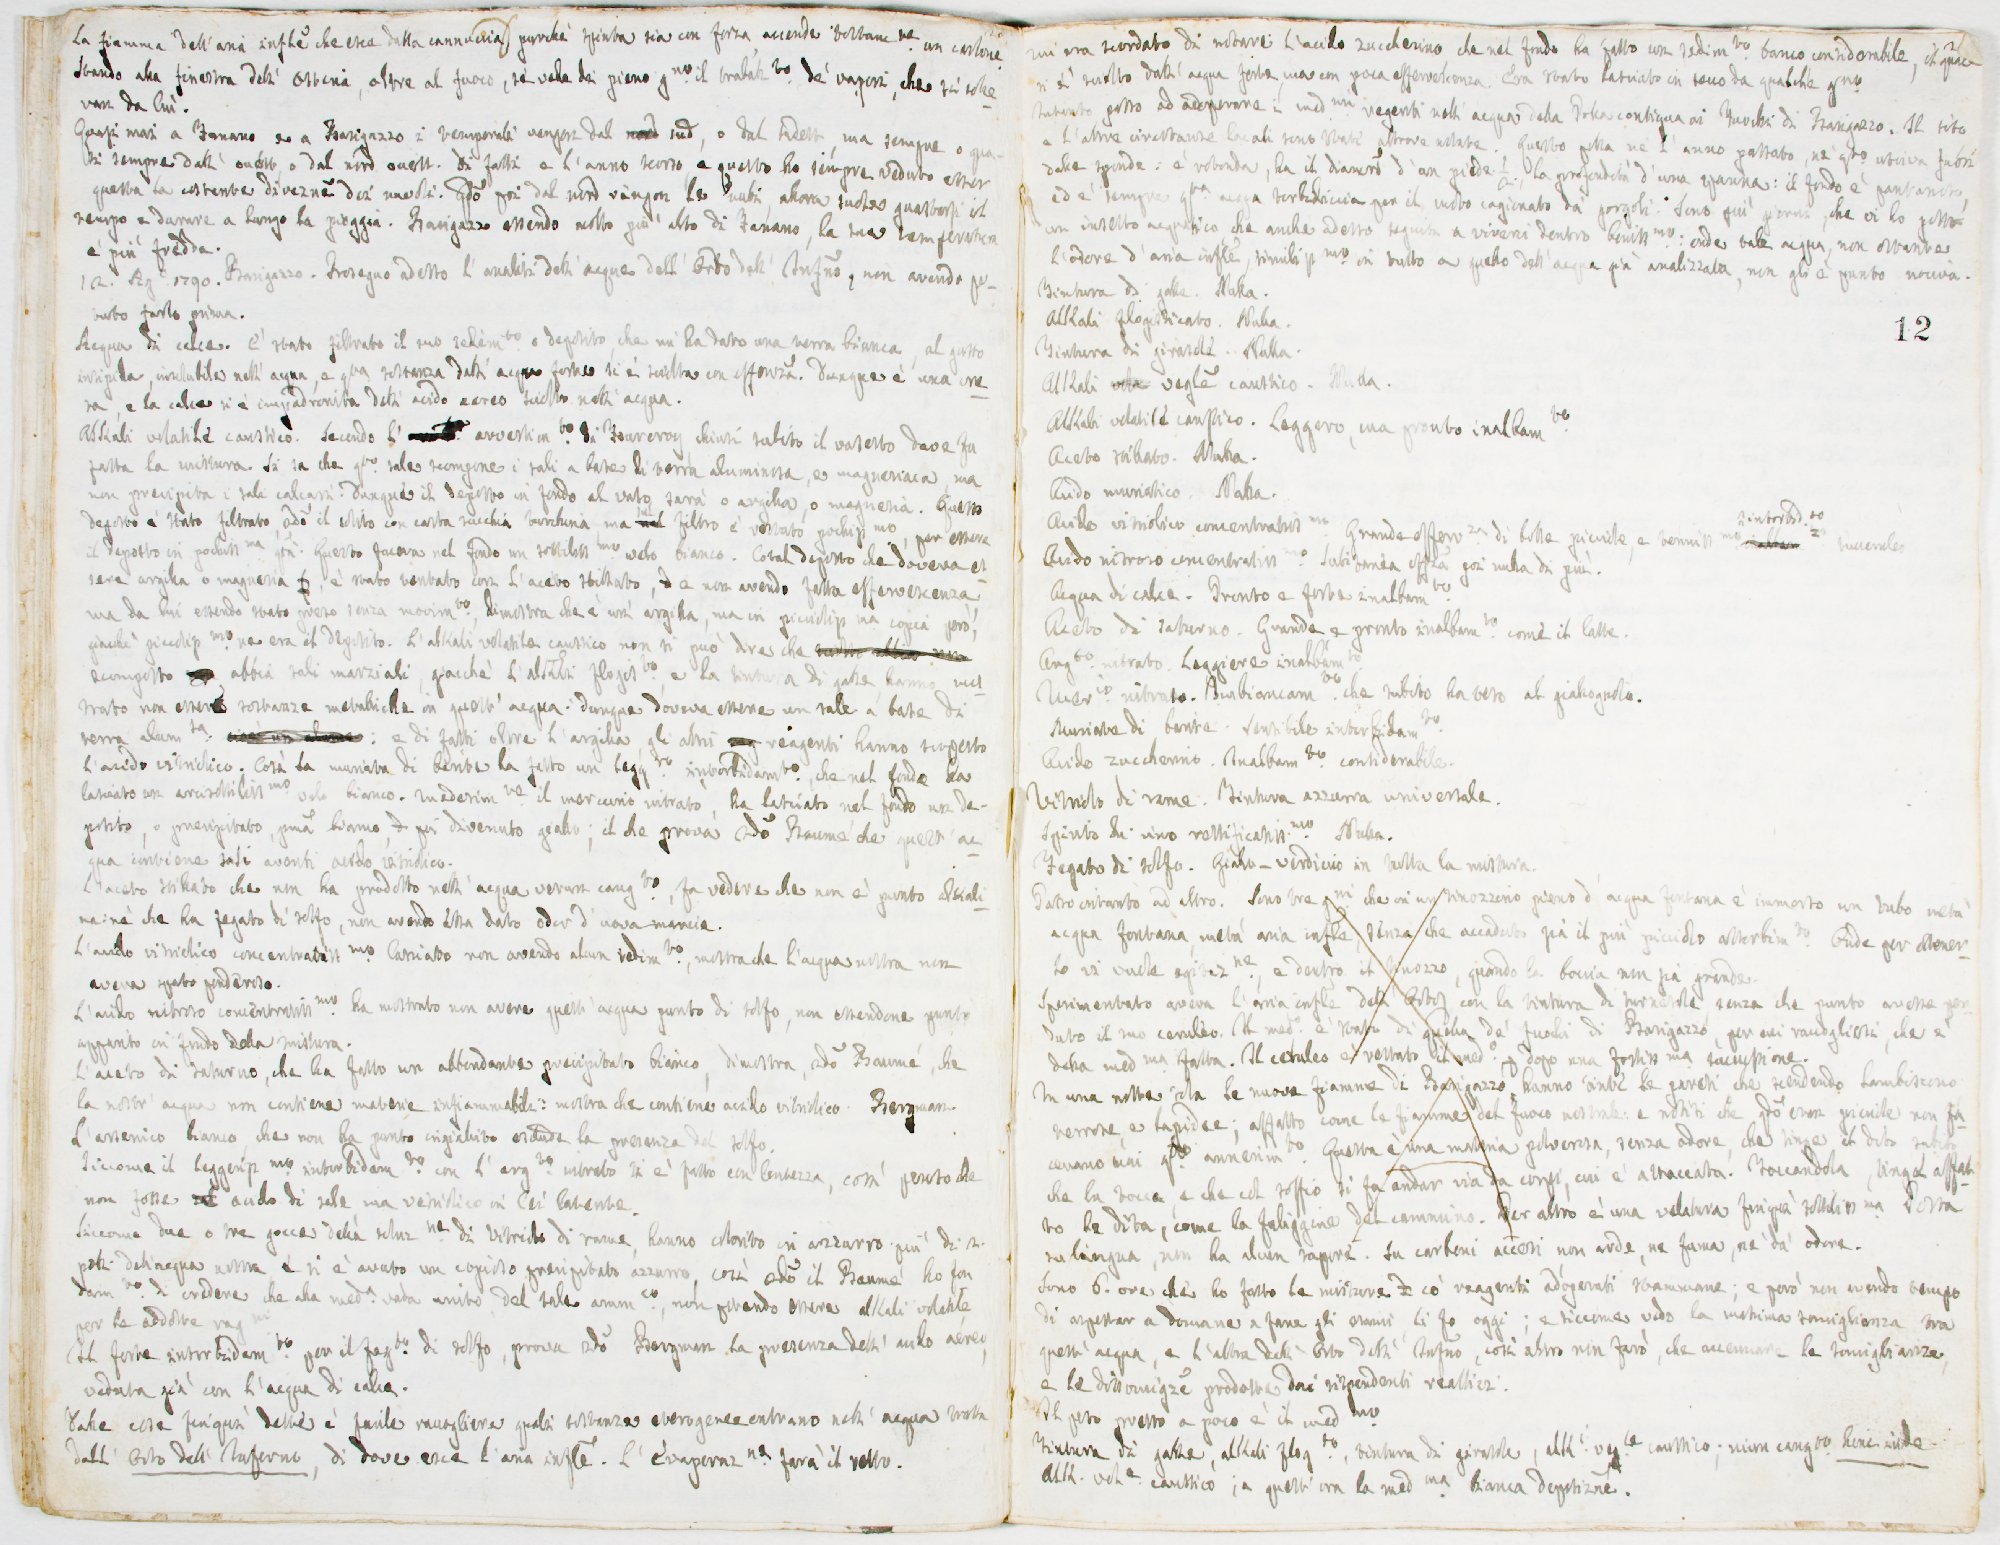 La fiamma dell'aria infle che esce dalla cannuccia, purché spinta sia con forza, accende bottam.te un cartone
Stando alla finestra dell'Osteria, oltre al fuoco, si vede di pieno g.no il de' vapori, che si solle-
van da lui.
Quasi mai a Fanano e a Barigazzo i temporali vengon dal sud, o dal sudest, ma sempre o qua-
si sempre dall'ouest, o dal nord ouest. Di fatti e l'anno scorso e questo ho sempre veduto esser
questa la costante direzne dei nuvoli. Qdo poi dal nord vengon le nubi allora suole guastarsi il
tempo e durare a lungo la pioggia. Barigazzo essendo molto più alto di Fanano, la sua temperatura
è più fredda.
12. Ag. 1790. Barigazzo. Proseguo adesso l'analisi dell'acque dell'Orto dell'Infno, non avendo po-
tuto farlo prima.
Acqua di calce. È stato filtrato il suo sedim.to o deposito, che mi ha dato una terra bianca, al gusto
insipida, insolubile nell'acqua, e q.ta sostanza dall'acqua forte si è sciolta con effervza. Dunque è una cre-
ta, e la calce si è impadronita dell'acido aereo sciolto nell'acqua.
Alkali volatile caustico. Secondo l' avvertim.to di Fourcroy chiusi subito il vasetto dove fu
fatta la mistura. Si sa che q.to sale scompone i sali a base di terra aluminosa, e magnesiaca, ma
non precipita i sali calcari: dunque il deposto in fondo al vaso sarà o argilla, o magnesia. Questo
deposto è stato filtrato, sdo il solito con carta succhia turchina ma nel filtro è restato pochis.mo, per essere
il deposto in pochiss.ma q.tà. Questo faceva nel fondo un sottiliss.mo velo bianco. Cotal deposto che doveva es-
sere argilla o magnesia, è stato tentato con l'aceto stillato, e non avendo fatta effervescenza
ma da lui essendo stato preso senza movim.to, dimostra che è un'argilla, ma in picciolis.ma copia però,
giacché picciolis.mo ne era il deposito. L'alkali volatile caustico non si può dire che
scomposto abbia sali marziali, giacché l'alkali flogis.to, e la tintura di galle, hanno mos-
trato non esser sostanze metalliche in quest'acqua. Dunque doveva essere un sale a base di
terra alum.sa : e di fatti oltre l'argilla, gli altri reagenti hanno scoperto
l'acido vitriolico. Così la muriata di barite ha fatto un legg.ro intorbidam.to, che nel fondo ha
lasciato un arcisottiliss.mo velo bianco. Medesim.te il mercurio nitrato, ha lasciato nel fondo un de-
posito, o precipitato, pma bianco, e poi divenuto giallo; il che prova sdo Baumé che quest'ac-
qua contiene sali aventi acido vitriolico.
L'aceto stillato che non ha prodotto nell'acqua verun cang.to, fa vedere che non è punto alkali-
na: né che ha fegato di solfo, non avendo ella dato odor d'uova marcie.
L'acido vitriolico concentratiss.mo lasciato non avendo alcun sedim.to, mostra che l'acqua nostra non
aveva spato ponderoso.
L'acido nitroso concentratiss.mo ha mostrato non avere quest'acqua punto di solfo, non essendone punto
apparito in fondo della mistura.
L'aceto di saturno, che ha fatto un abbondante precipitato bianco, dimostra, sdo Baumé, che
la nostr'acqua non contiene materie infiammabili: mostra che contiene acido vitriolico. Bergman.
L'arsenico bianco, che non ha punto ingiallito esclude la presenza del solfo.
Siccome il leggeris.mo intorbidam.to con l'arg.to nitrato si è fatto con lentezza, così penso che
non fosse acido di sale ma vitriolico in lei latente.
Siccome due o tre gocce della soluz.ne di Vitriolo di rame, hanno colorito in azzurro più di
dell'acqua nostra e si è avuto un copioso precipitato azzurro, così sdo il Baumé ho fon
dam.to di credere che alla meda vada unito del sale amm.co, non potendo essere alkali volatile
per le addotte rag.ni
Il forte intorbidam.to per il feg.to di solfo, prova sdo Bergman la presenza dell'acido aereo,
veduta già con l'acqua di calce.
Dalle cose finqui dette è facile raccogliere quali sostanze eterogenee entrano nell'acqua tratta
dall'Orto dell'Inferno, di dove esce l'aria infle. L'Evaporaz.ne farà il resto.
mi era scordato di notare l'acido zuccherino che nel fondo ha fatto un sedim.to bianco considerabile, il quale
si è sciolto dall'acqua forte, ma con poca effervescenza. Era stato lasciato in seno da qualche g.no
Intanto passo ad adoperare i med.mi reagenti nell'acqua della Polla contigua ai Fuochi di Barigazzo. Il sito
e l'altre circostanze locali sono state altrove notate. Questa polla né l'anno passato, né q.to usciva fuori
dalle sponde: è rotonda, ha il diametro d'un piede ½, la profondità d'una spanna: il fondo è pantanoso,
ed è sempre q.ta acqua torbidiccia per il moto cagionato da' gorgogli. Sono più giorni, che vi ho gettato
un insetto acquatico che anche adesso seguita a vivervi dentro beniss.mo: onde tale acqua, non ostante
l'odore d'aria infle, similis.mo in tutto a quello dell'acqua già analizzata, non gli è punto nociva.
12
Tintura di galle. Nulla.
Alkali flogisticato. Nulla.
Tintura di girasole. Nulla.
Alkali vegle caustico. Nulla.
Alkali volatile caustico. Leggero, ma pronto inalbam.to
Aceto stillato. Nulla.
Acido muriatico. Nulla.
Acido vitriolico concentratiss.mo Grande efferv.za di bolle picciole, e teniss.mo intorbid.to
Acido nitroso concentratiss.mo Subitanea effza poi nulla di più.
Acqua di calce. Pronto e forte inalbam.to
Aceto di saturno. Grande e pronto inalbam.to come il latte.
Arg.to nitrato. Leggiere inalbam.to
Mer.io nitrato. Imbiancam.to che subito ha teso al giallognolo.
Muriate di barite. Sensibile intorbidam.to
Acido zuccherino. Inalbam.to considerabile.
Vitriolo di rame. Tintura azzurra universale.
Spirito di vino rettificatiss.mo Nulla.
Fegato di solfo. Giallo-verdiccio in tutta la mistura.
Passo intanto ad altro. Sono tre g.ni che in un tinozzino pieno d'acqua fontana è immerso un tubo metà
acqua fontana metà aria infle, senza che accaduto sia il più picciolo assorbim.to Onde per ottener-
lo vi vuole agitaz.ne, e dentro il tinozzo, quando la boccia non sia grande.
Sperimentato aveva l'aria infle dell'Orto con la tintura di turnesole senza che punto avesse per-
duto il suo ceruleo. Il med.o è stato di quella de' fuochi di Barigazzo, per cui raccogliesi, che è
della med.ma fatta. Il ceruleo è restato il med.o dopo una fortiss.ma succussione.
In una notte sola le nuove fiamme di Barigazzo hanno tinte le pareti che scendendo lambiscono
terrose, e lapidee; affatto come le fiamme del fuoco nostrale: e notisi che qdo eran picciole non fa-
cevano mai q.to annerim.to Questa è una materia polverosa, senza odore, che tinge il dito subito
che la tocca e che col soffio si fa andar via da corpi, cui è attaccata. Toccandola, tinge affat-
to le dita, come la fuliggine del cammino. Per altro è una velatura finqui sottiliss.ma Posta
su la lingua, non ha alcun sapore. Su carboni accesi non arde, né fuma, né dà odore.
Sono 6. ore che ho fatto le misture co' reagenti adoperati stammane; e però non avendo tempo
di aspettar a domane a fare gli esami li fo oggi; e siccome vedo la massima somiglianza tra
quest'acqua, e l'altra dell'Orto dell'Infno, così altro non farò, che accennare le somiglianze,
e le dissomigze prodotte dai rispondenti reattivi.
Il peso presso a poco è il med.mo
Tintura di galle, alkali flog.to, tintura di girasole, alk. veg.le caustico; niun cang.to hinc inde
Alk. vol.e caustico; a quest'ora la med.ma bianca deposizne.